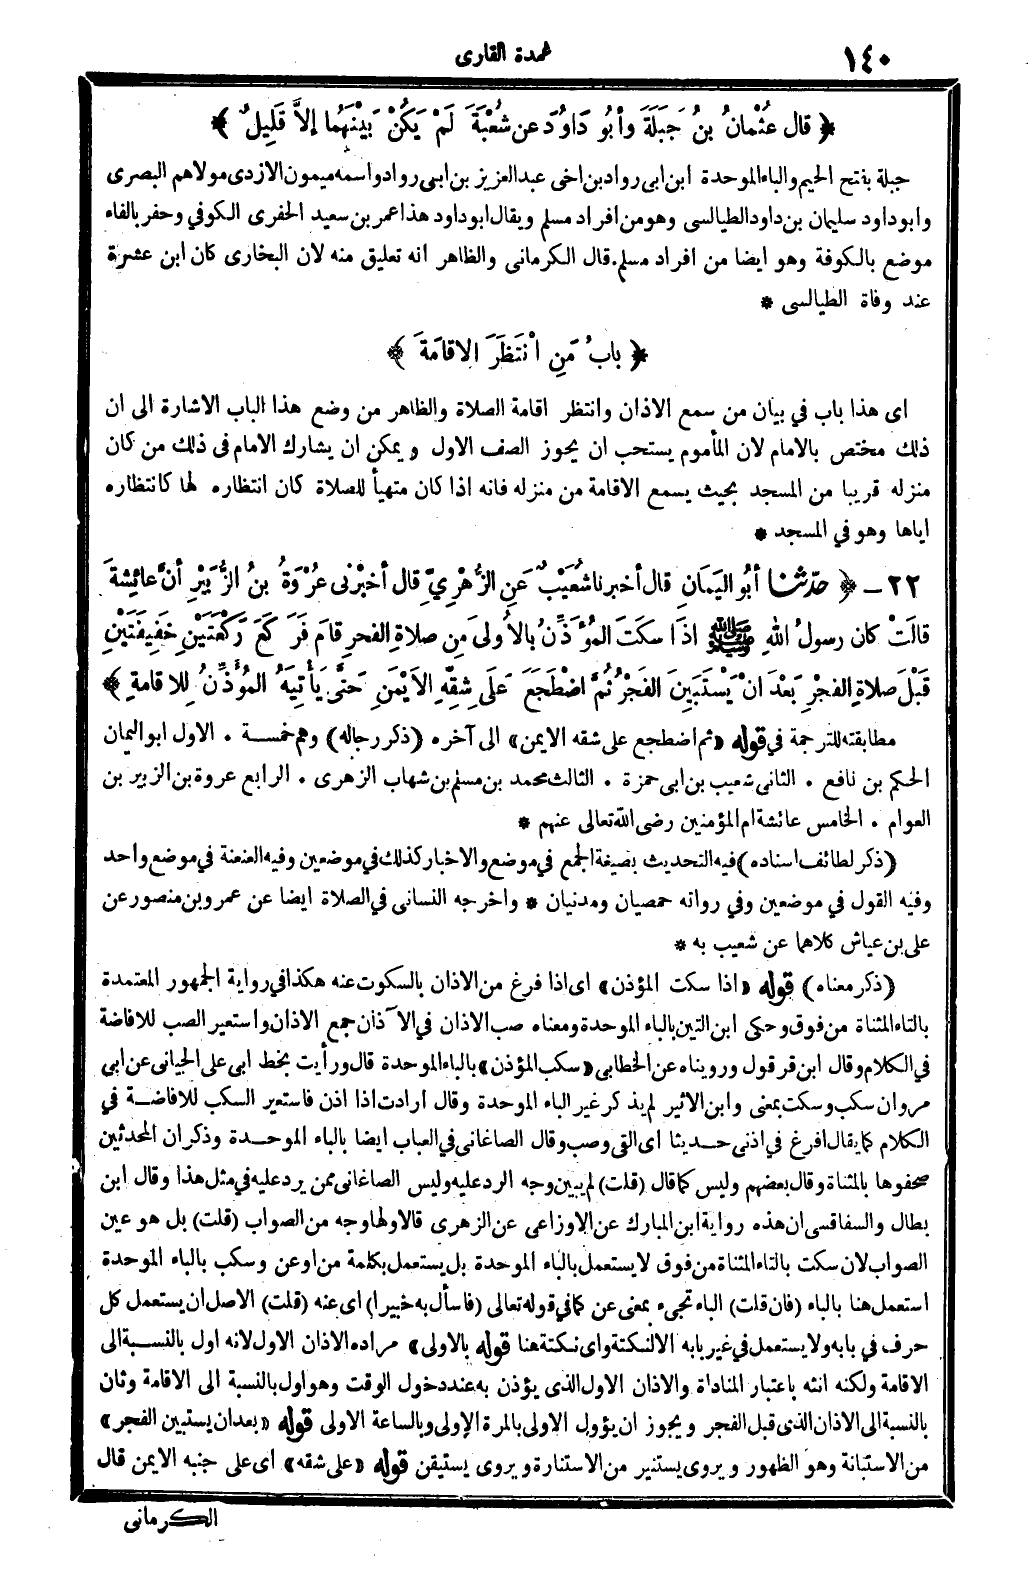 ١٤٠
عمدة القارى
﴿ قال عُثْمانُ بنُ جَبَلَةَ وأبُو دَاوُدَ عن شُعْبَةَ لَمْ يَكُنْ بَيْنَهُما إلاَّ قَلِيلٌ ﴾
جبلة بفتح الجيم والباء الموحدة ابن ابى رواد بن اخى عبد العزيز بن ابى رواد واسمه ميمون الازدى مولاهم البصرى
وابو داود سليمان بن داود الطيالسى وهو من افراد مسلم ويقال ابو داود هذا عمر بن سعيد الحفرى الكوفي وحفر بالفاء
موضع بالكوفة وهو ايضا من افراد مسلم. قال الكرمانى والظاهر انه تعليق منه لان البخارى كان ابن عشرة
عند وفاة الطيالسى *
﴿ بابُ مَنِ انْتَظَرَ الاقامَةَ ﴾
اى هذا باب في بيان من سمع الاذان وانتظر اقامة الصلاة والظاهر من وضع هذا الباب الاشارة الى ان
ذلك مختص بالامام لان المأموم يستحب ان يحوز الصف الاول ويمكن ان يشارك الامام فى ذلك من كان
منزله قريبا من المسجد بحيث يسمع الاقامة من منزله فانه اذا كان متهيأ للصلاة كان انتظاره لها كانتظاره
اياها وهو في المسجد *
٢٢ ـ ﴿ حدّثنا أبُو اليَمَانِ قال أخبرنا شُعَيْبٌ عَنِ الزُّهْرِيِّ قال أخبرنى عُرْوَةُ بنُ الزُّبَيْرِ أنَّ عائِشةَ
قالَتْ كان رسولُ اللهِ ﷺ اذَا سكَتَ المُؤَذِّنُ بالأُولىَ مِن صلاةِ الفجرِ قامَ فَرَكَعَ رَكْعَتَيْنِ خَفِيفَتَيْنِ
قَبْلَ صلاةِ الفجْرِ بَعْدَ انْ يَسْتَبَيِنَ الفَجْرُ ثُمَّ اضْطَجَعَ عَلَى شِقِّهِ الايْمَنِ حَتَّى يَأتِيَهُ المُؤَذِّنُ لِلاقامةِ ﴾
مطابقته للترجمة في قوله «ثم اضطجع على شقه الايمن» الى آخره. (ذكر رجاله) وهم خمسة. الاول ابو اليمان
الحكم بن نافع. الثانى شعيب بن ابى حمزة. الثالث محمد بن مسلم بن شهاب الزهرى. الرابع عروة بن الزبير بن
العوام. الخامس عائشة ام المؤمنين رضى الله تعالى عنهم *
(ذكر لطائف اسناده) فيه التحديث بصيغة الجمع في موضع والاخبار كذلك في موضعين وفيه العنعنة في موضع واحد
وفيه القول في موضعين وفي رواته حمصيان ومدنيان * واخرجه النسائى في الصلاة ايضا عن عمرو بن منصور عن
على بن عياش كلاهما عن شعيب به *
(ذكر معناه) قوله «اذا سكت المؤذن» اى اذا فرغ من الاذان بالسكوت عنه هكذا في رواية الجمهور المعتمدة
بالتاء المثناة من فوق وحكى ابن التين بالباء الموحدة ومعناه صب الاذان في الآذان جمع الاذان واستعير الصب للافاضة
في الكلام وقال ابن قرقول ورويناه عن الخطابى «سكب المؤذن» بالباء الموحدة قال ورأيت بخط ابى على الجيانى عن ابى
مروان سكب وسكت بمعنى وابن الاثير لم يذكر غير الباء الموحدة وقال ارادت اذا اذن فاستعير السكب للافاضة في
الكلام كما يقال افرغ في اذنى حديثا اى القى وصب وقال الصاغانى في العباب ايضا بالباء الموحدة وذكر ان المحدثين
صحفوها بالمثناة وقال بعضهم وليس كما قال (قلت) لم يبين وجه الرد عليه وليس الصاغانى ممن يرد عليه في مثل هذا وقال ابن
بطال والسفاقسى ان هذه رواية ابن المبارك عن الاوزاعى عن الزهرى قالا ولها وجه من الصواب (قلت) بل هو عين
الصواب لان سكت بالتاء المثناة من فوق لا يستعمل بالباء الموحدة بل يستعمل بكلمة من او عن وسكب بالباء الموحدة
استعمل هنا بالباء (فان قلت) الباء تجىء بمعنى عن كما في قوله تعالى (فاسأل به خبيرا) اى عنه (قلت) الاصل ان يستعمل كل
حرف في بابه ولا يستعمل في غير بابه الا لنكتة واى نكتة هنا قوله بالاولى» مراده الاذان الاول لانه اول بالنسبة الى
الاقامة ولكنه انثه باعتبار المناداة والاذان الاول الذى يؤذن به عند دخول الوقت وهو اول بالنسبة الى الاقامة وثان
بالنسبة الى الاذان الذى قبل الفجر ويجوز ان يؤول الاولى بالمرة الاولى وبالساعة الاولى قوله «بعد ان يستبين الفجر»
من الاستبانة وهو الظهور ويروى يستنير من الاستنارة ويروى يستيقن قوله «على شقه» اى على جنبه الايمن قال
الكرمانى